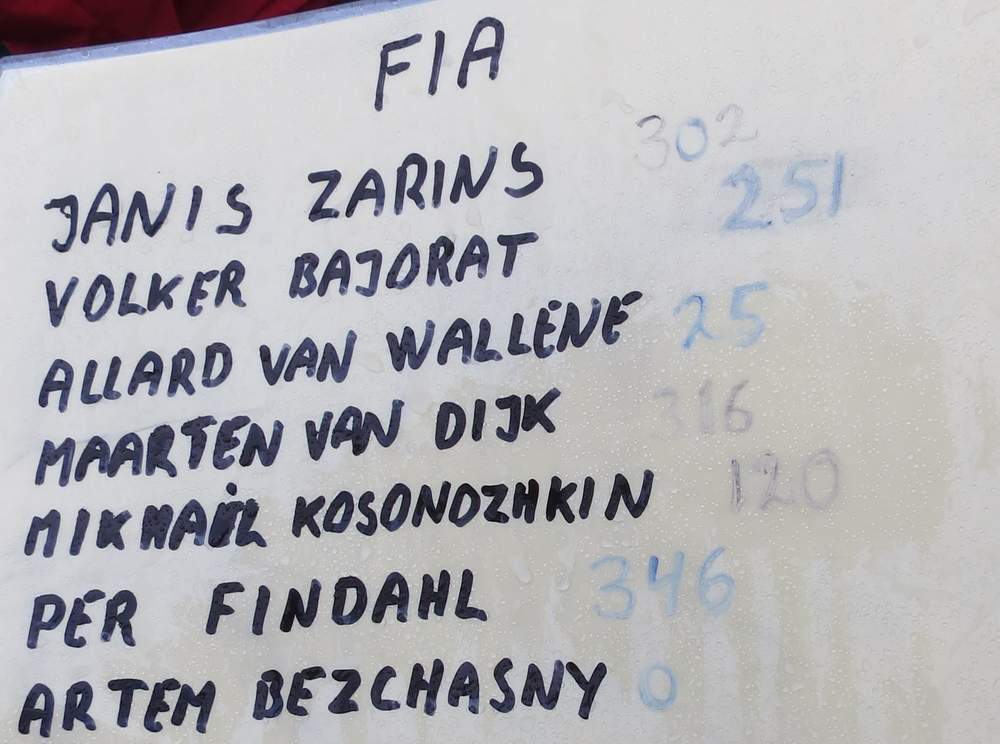 FIA
JANIS ZARINS 302
VOLKER BAJORAT 251
ALLARD VAN WALLENE 25
MAARTEN VAN DIJK 316
MIKHAIL KOSONOZHKIN 120
PER FINDAHL 346
ARTEM BEZCHASNY 0